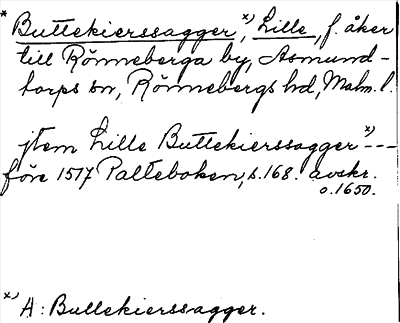 * Buttekierssagger, x) Lille, f. åker
till Rönneberga by, Asmund-
torps sn, Rönnebergs hd, Malm. l.
jtem Lille Buttekierssagger x) ---
före 1517 Palteboken, s. 168. avskr.
o. 1650.
x) A: Bullekierssagger.